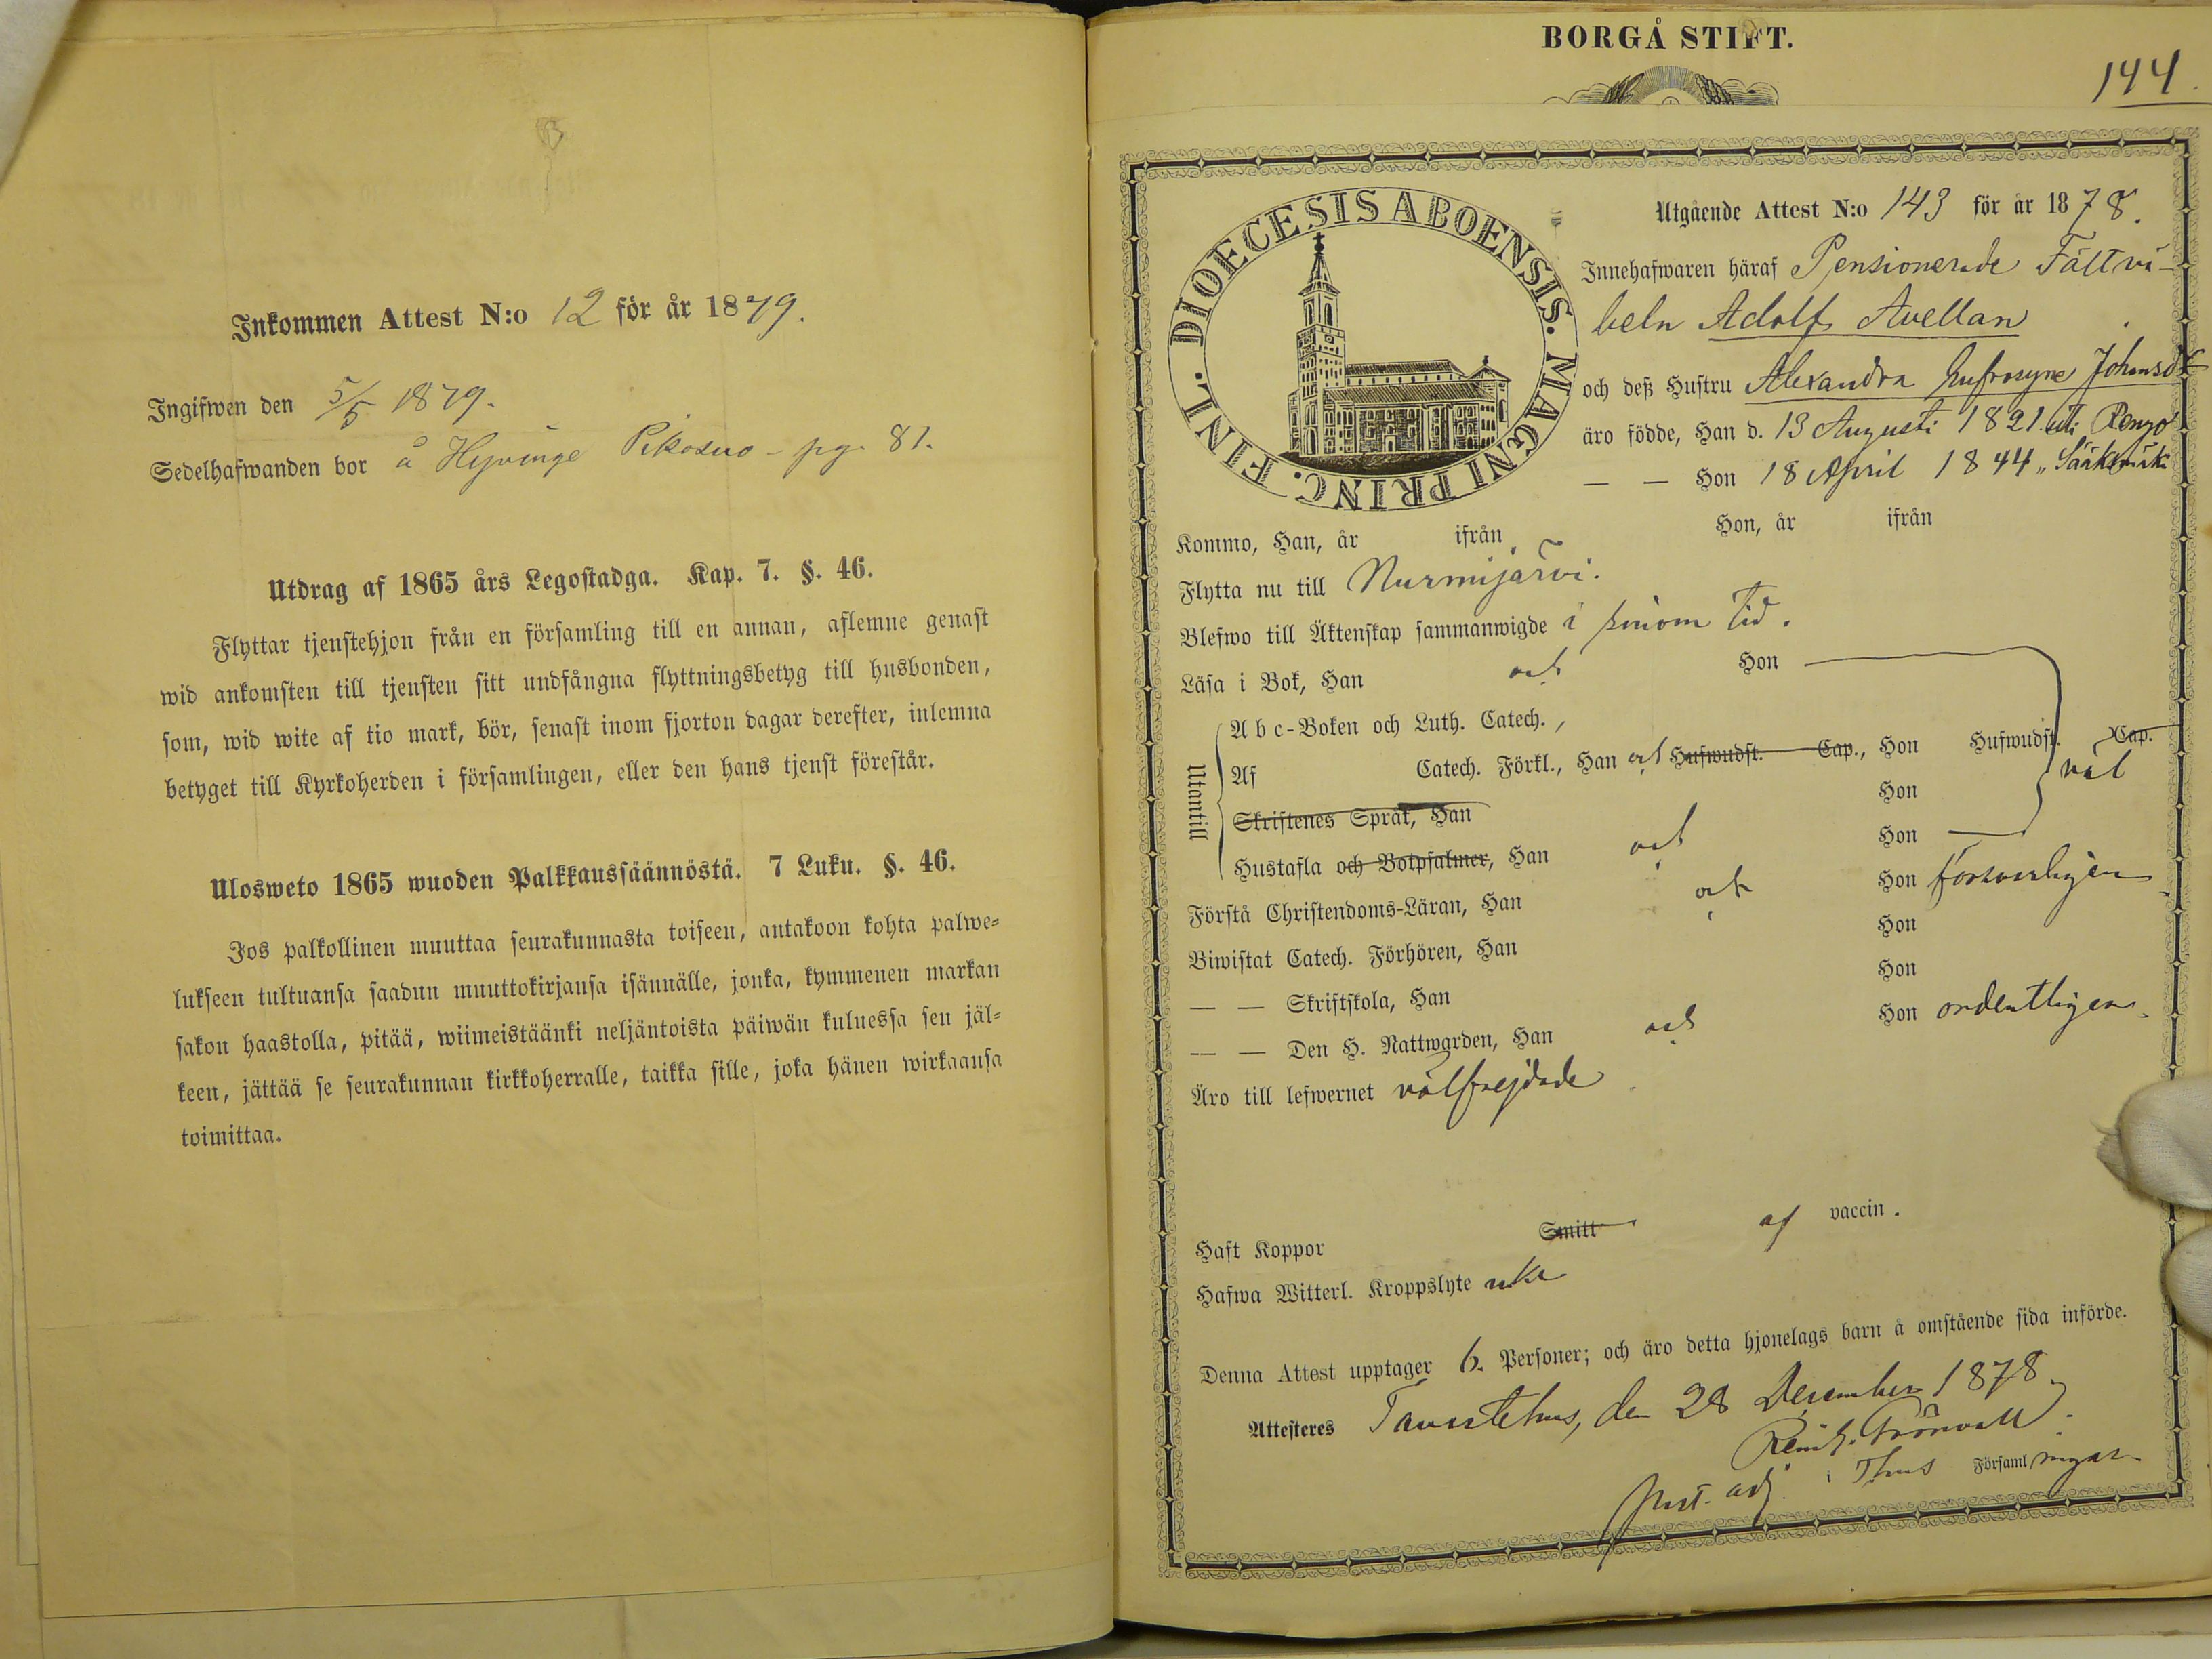 Inkommen Attest N:o 12 för år 1879.
Ingifwen den 5/5 1879.
Sedelhafwanden bor å Hyvinge Pikosuo - pg. 81.
Utdrag af 1865 års Legostadga. Kap. 7. §. 46.
Flyttar tjenstehjon från en församling till en annan, aflemne genast
wid ankomsten till tjensten sitt undfångna flyttningsbetyg till husbonden,
som, wid wite af tio mark, bör, senast inom fjorton dagar derefter, inlemna
betyget till Kyrkoherden i församlingen, eller den hans tjenst förestår.
Ulosweto 1865 wuoden Palkkaussäännöstä. 7 Luku. §. 46.
Jos palkollinen muuttaa seurakunnasta toiseen, antakoon kohta palwe-
lukseen tultuansa saadun muuttokirjansa isännälle, jonka, kymmenen markan
sakon haastolla, pitää, wiimeistäänki neljäntoista päiwän kuluessa sen jäl-
keen, jättää se seurakunnan kirkkoherralle, taikka sille, joka hänen wirkaansa
toimittaa.
BORGÅ STIFT.
144.
DIOECESIS ABOENSIS. MAGNI PRINC. FINL.
Utgående Attest N:o 143 för år 1878.
Innehafwaren häraf Pensionerade Fältvä-
beln Adolf Avellan
och deß Hustru Alexandra Eufrosyne Johansdr
äro födde, Han d. 13 Augusti 1821 uti Rengo
— — Hon 18 April 1844 „ Sääksmäki
Kommo, Han, år ifrån Hon, år ifrån
Flytta nu till Nurmijärvi.
Blefwo till Äktenskap sammanwigde i sinom tid.
Läsa i Bok, Han och Hon
Utantill
A b c-Boken och Luth. Catech.,
Af Catech. Förkl., Han och Hufwudst. Cap., Hon Hufwudst. Cap.
väl
Skriftenes Språk, Han Hon
Hustafla och Botpsalmer, Han och Hon
Förstå Christendoms-Läran, Han och Hon försvarligen
Biwistat Catech. Förhören, Han Hon
— — Skriftskola, Han Hon
— — Den H. Nattwarden, Han och Hon ordentligen.
Äro till lefwernet välfrejdade
Haft Koppor Smitt af vaccin.
Hafwa Witterl. Kroppslyte icke
Denna Attest upptager 6. Personer; och äro detta hjonelags barn å omstående sida införde.
Attesteres Tavastehus, den 28 December 1878.
Past. adj. i Thus Församlingar